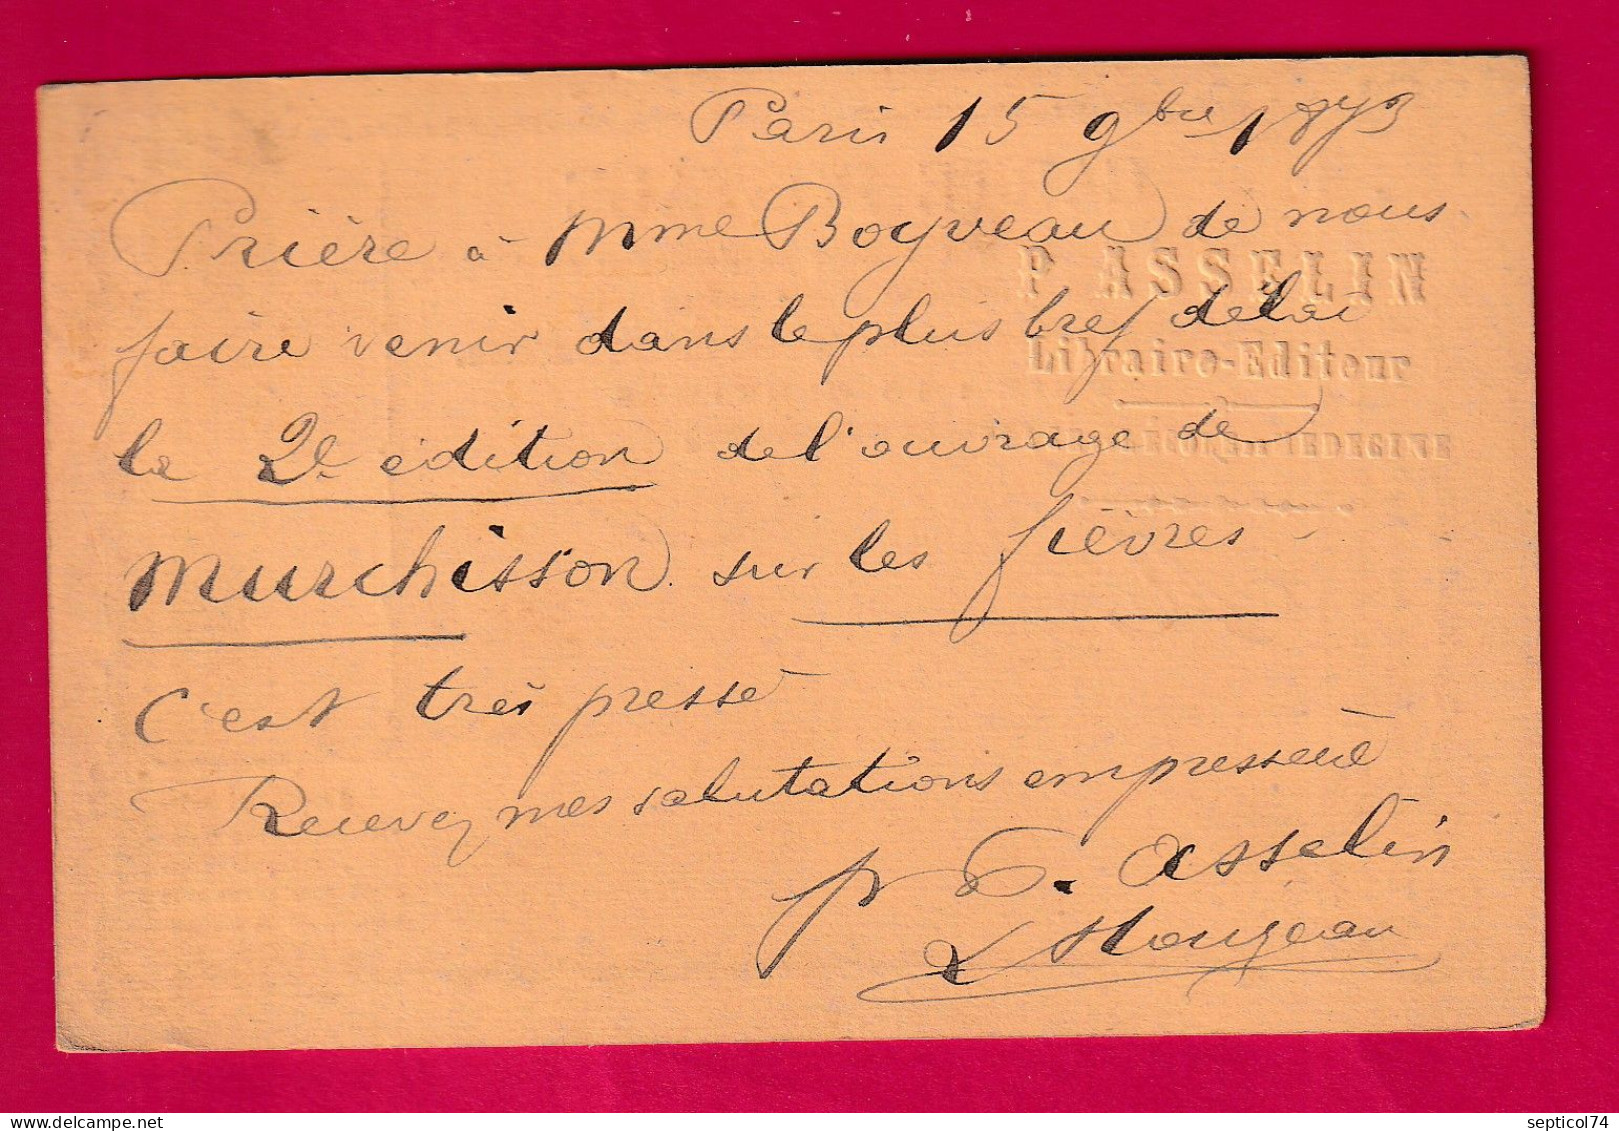 Paris 15 9bre 1873
Prière à Mme Boyveau de nous
P ASSELIN
faire venir dans le plus bref délai
Libraire-Editeur
la 2e édition de l'ouvrage de
MEDECINE
Murchisson sur les fièvres
C'est très pressé
Recevez mes salutations empressées
pr P. Asselin
septicol74